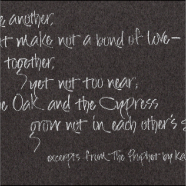 another,
make not a bond of love—
together,
yet not too near;
Oak and the Cypress
grow not in each other's
excerpts from The Prophet by